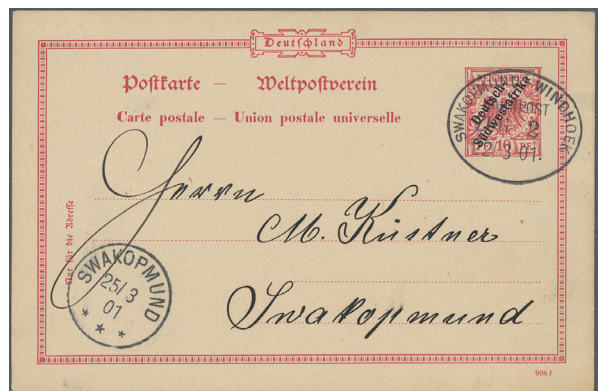 Deutschland
Postkarte — Weltpostverein
Carte postale — Union postale universelle
SWAKOPMUND WINDHOEK
BAHNPOST
2
22/3 01.
Deutsch-
Südwestafrika
10
Herrn
M. Küstner
Swakopmund
Nur für die Adresse
SWAKOPMUND
25/3
01
998 f